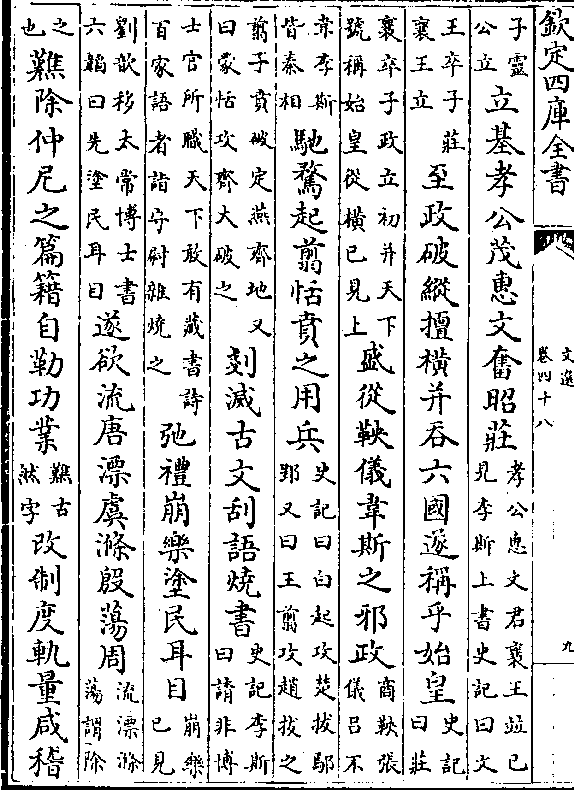 欽定四庫全書
文選
卷四十八
九
子靈
公立立基孝公茂惠文奮昭莊孝公惠文君襄王並已
見李斯上書史記曰文
王卒子莊
襄王立至政破縱擅橫并吞六國遂稱乎始皇史記
曰莊
襄卒子政立初并天下
號稱始皇從橫已見上盛從鞅儀韋斯之邪政商鞅張
儀吕不
韋李斯
皆秦相馳騖起翦恬賁之用兵史記曰白起攻楚拔鄢
郢又曰王翦攻趙拔之
翦子賁破定燕齊地又
曰蒙恬攻齊大破之剗滅古文刮語燒書史記李斯
曰請非博
士官所職天下敢有藏書詩
百家語者詣守尉雜燒之弛禮崩樂塗民耳目崩樂
已見
劉歆移太常博士書
六韜曰先塗民耳目遂欲流唐漂虞滌殷蕩周流漂滌
蕩謂除
之
也難除仲尼之篇籍自勒功業難古
然字改制度軌量咸稽